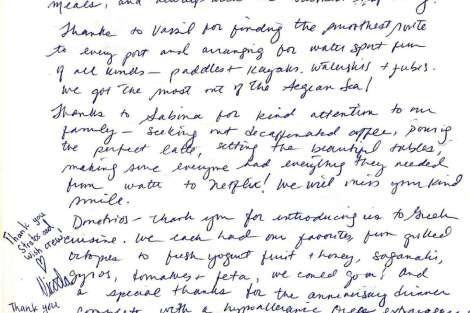 meals, and always
Thanks to Vassil for finding the smoothest route
to every port and arranging for water sport fun
of all kinds – paddles + kayaks, waterskis + tubes.
We got the most out of the Aegean Sea!
Thanks to Sabina for kind attention to our
family – seeking out decaffeinated coffee, pouring
the perfect latte, setting the beautiful tables,
making sure everyone had everything they needed
from water to Netflix! We will miss your kind
smile.
Dimitrios – thank you for introducing us to Greek
cuisine. We each had our favorites from grilled
octopus to fresh yogurt fruit + honey, saganaki,
gyros, tomatoes + feta, we could go on! And
a special thanks for the anniversary dinner
complete with a hypoallergenic
Thank you
Stratos and
crew!
♡
Nicola
Thank you